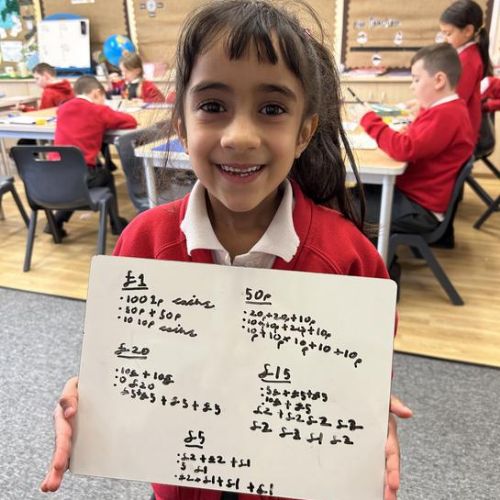 £1
: 100 1p coins
: 50p + 50p
: 10 10p coins
50p
: 20p + 20p + 10p
+ 10p
: 10p + 10p + 10 + 10 + 10p
£20
: 10£ + 10£
: 0 £20
: £5 + £5 + £5 + £5
£15
: 5£ + £5 + £5
: 10£ + £5
£2 + £2 £2 £2
£2 £2 £1 £2
£5
: £2 + £2 + £1
: 5 £1
: £2 + £1 + £1 + £1